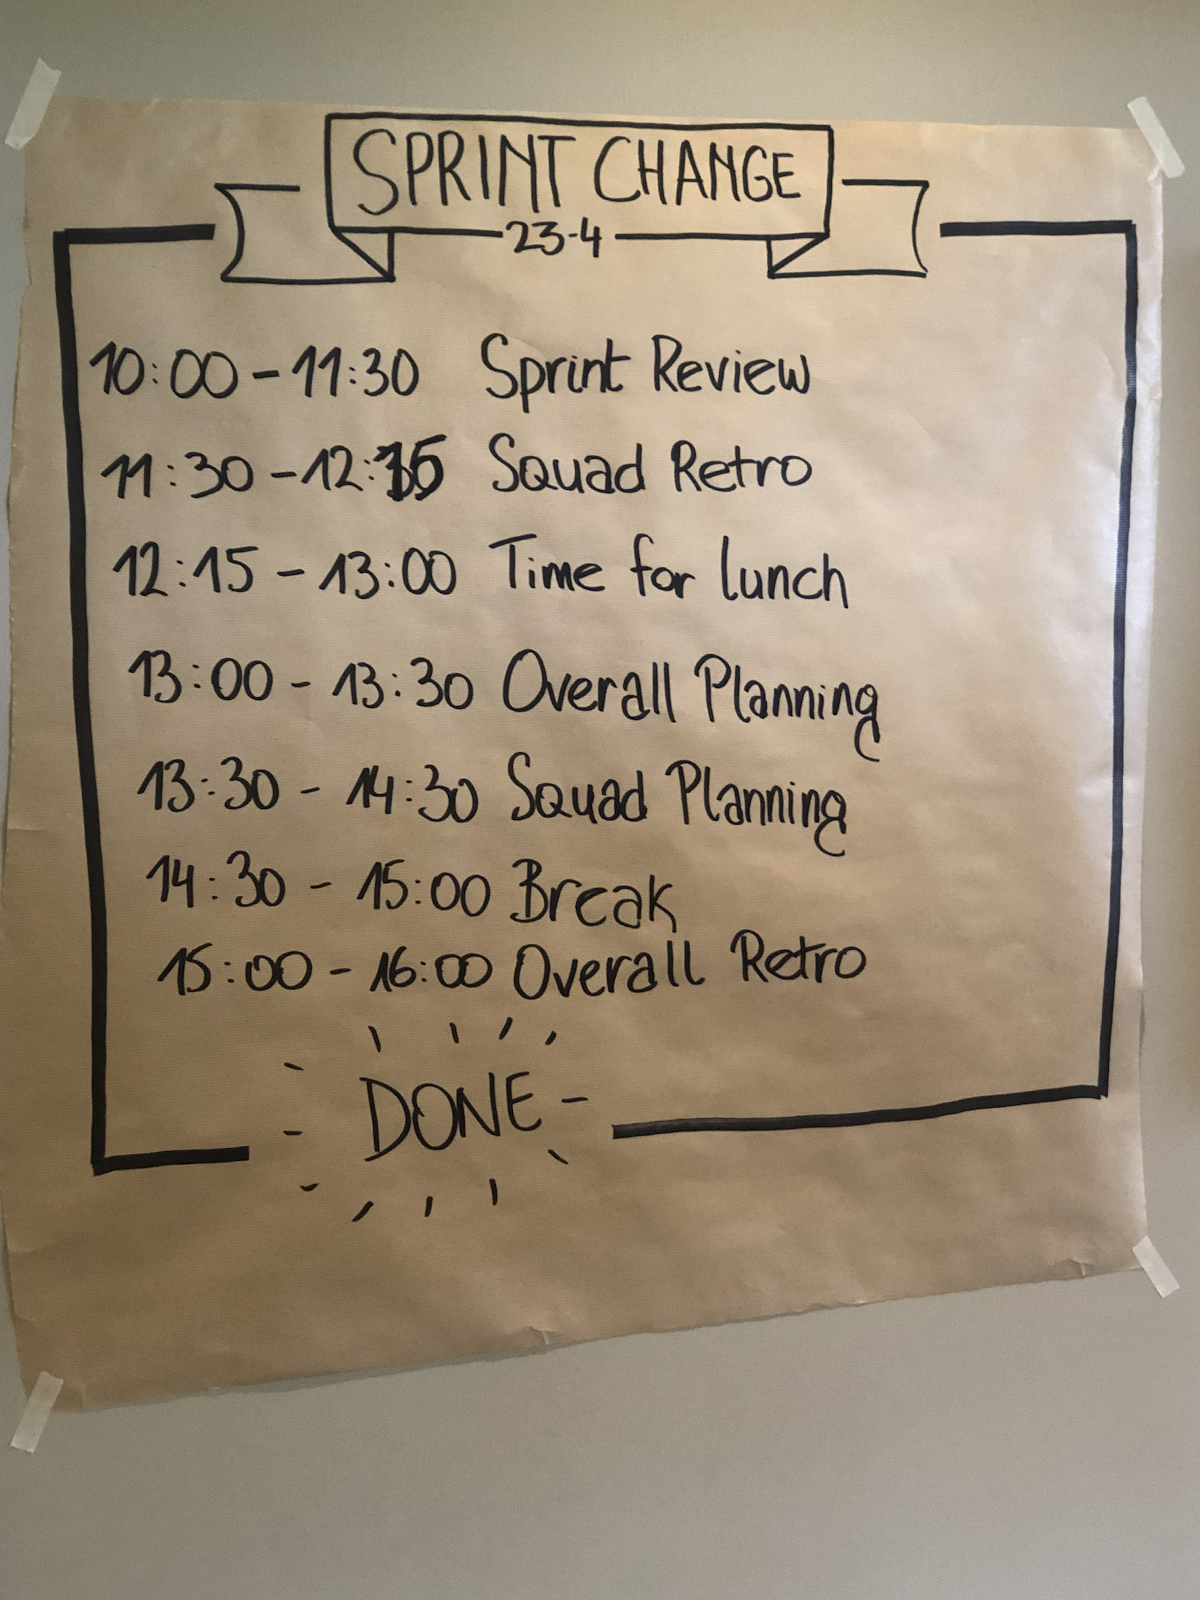 SPRINT CHANGE
23-4
10:00 - 11:30 Sprint Review
11:30 - 12:15 Squad Retro
12:15 - 13:00 Time for lunch
13:00 - 13:30 Overall Planning
13:30 - 14:30 Squad Planning
14:30 - 15:00 Break
15:00 - 16:00 Overall Retro
DONE